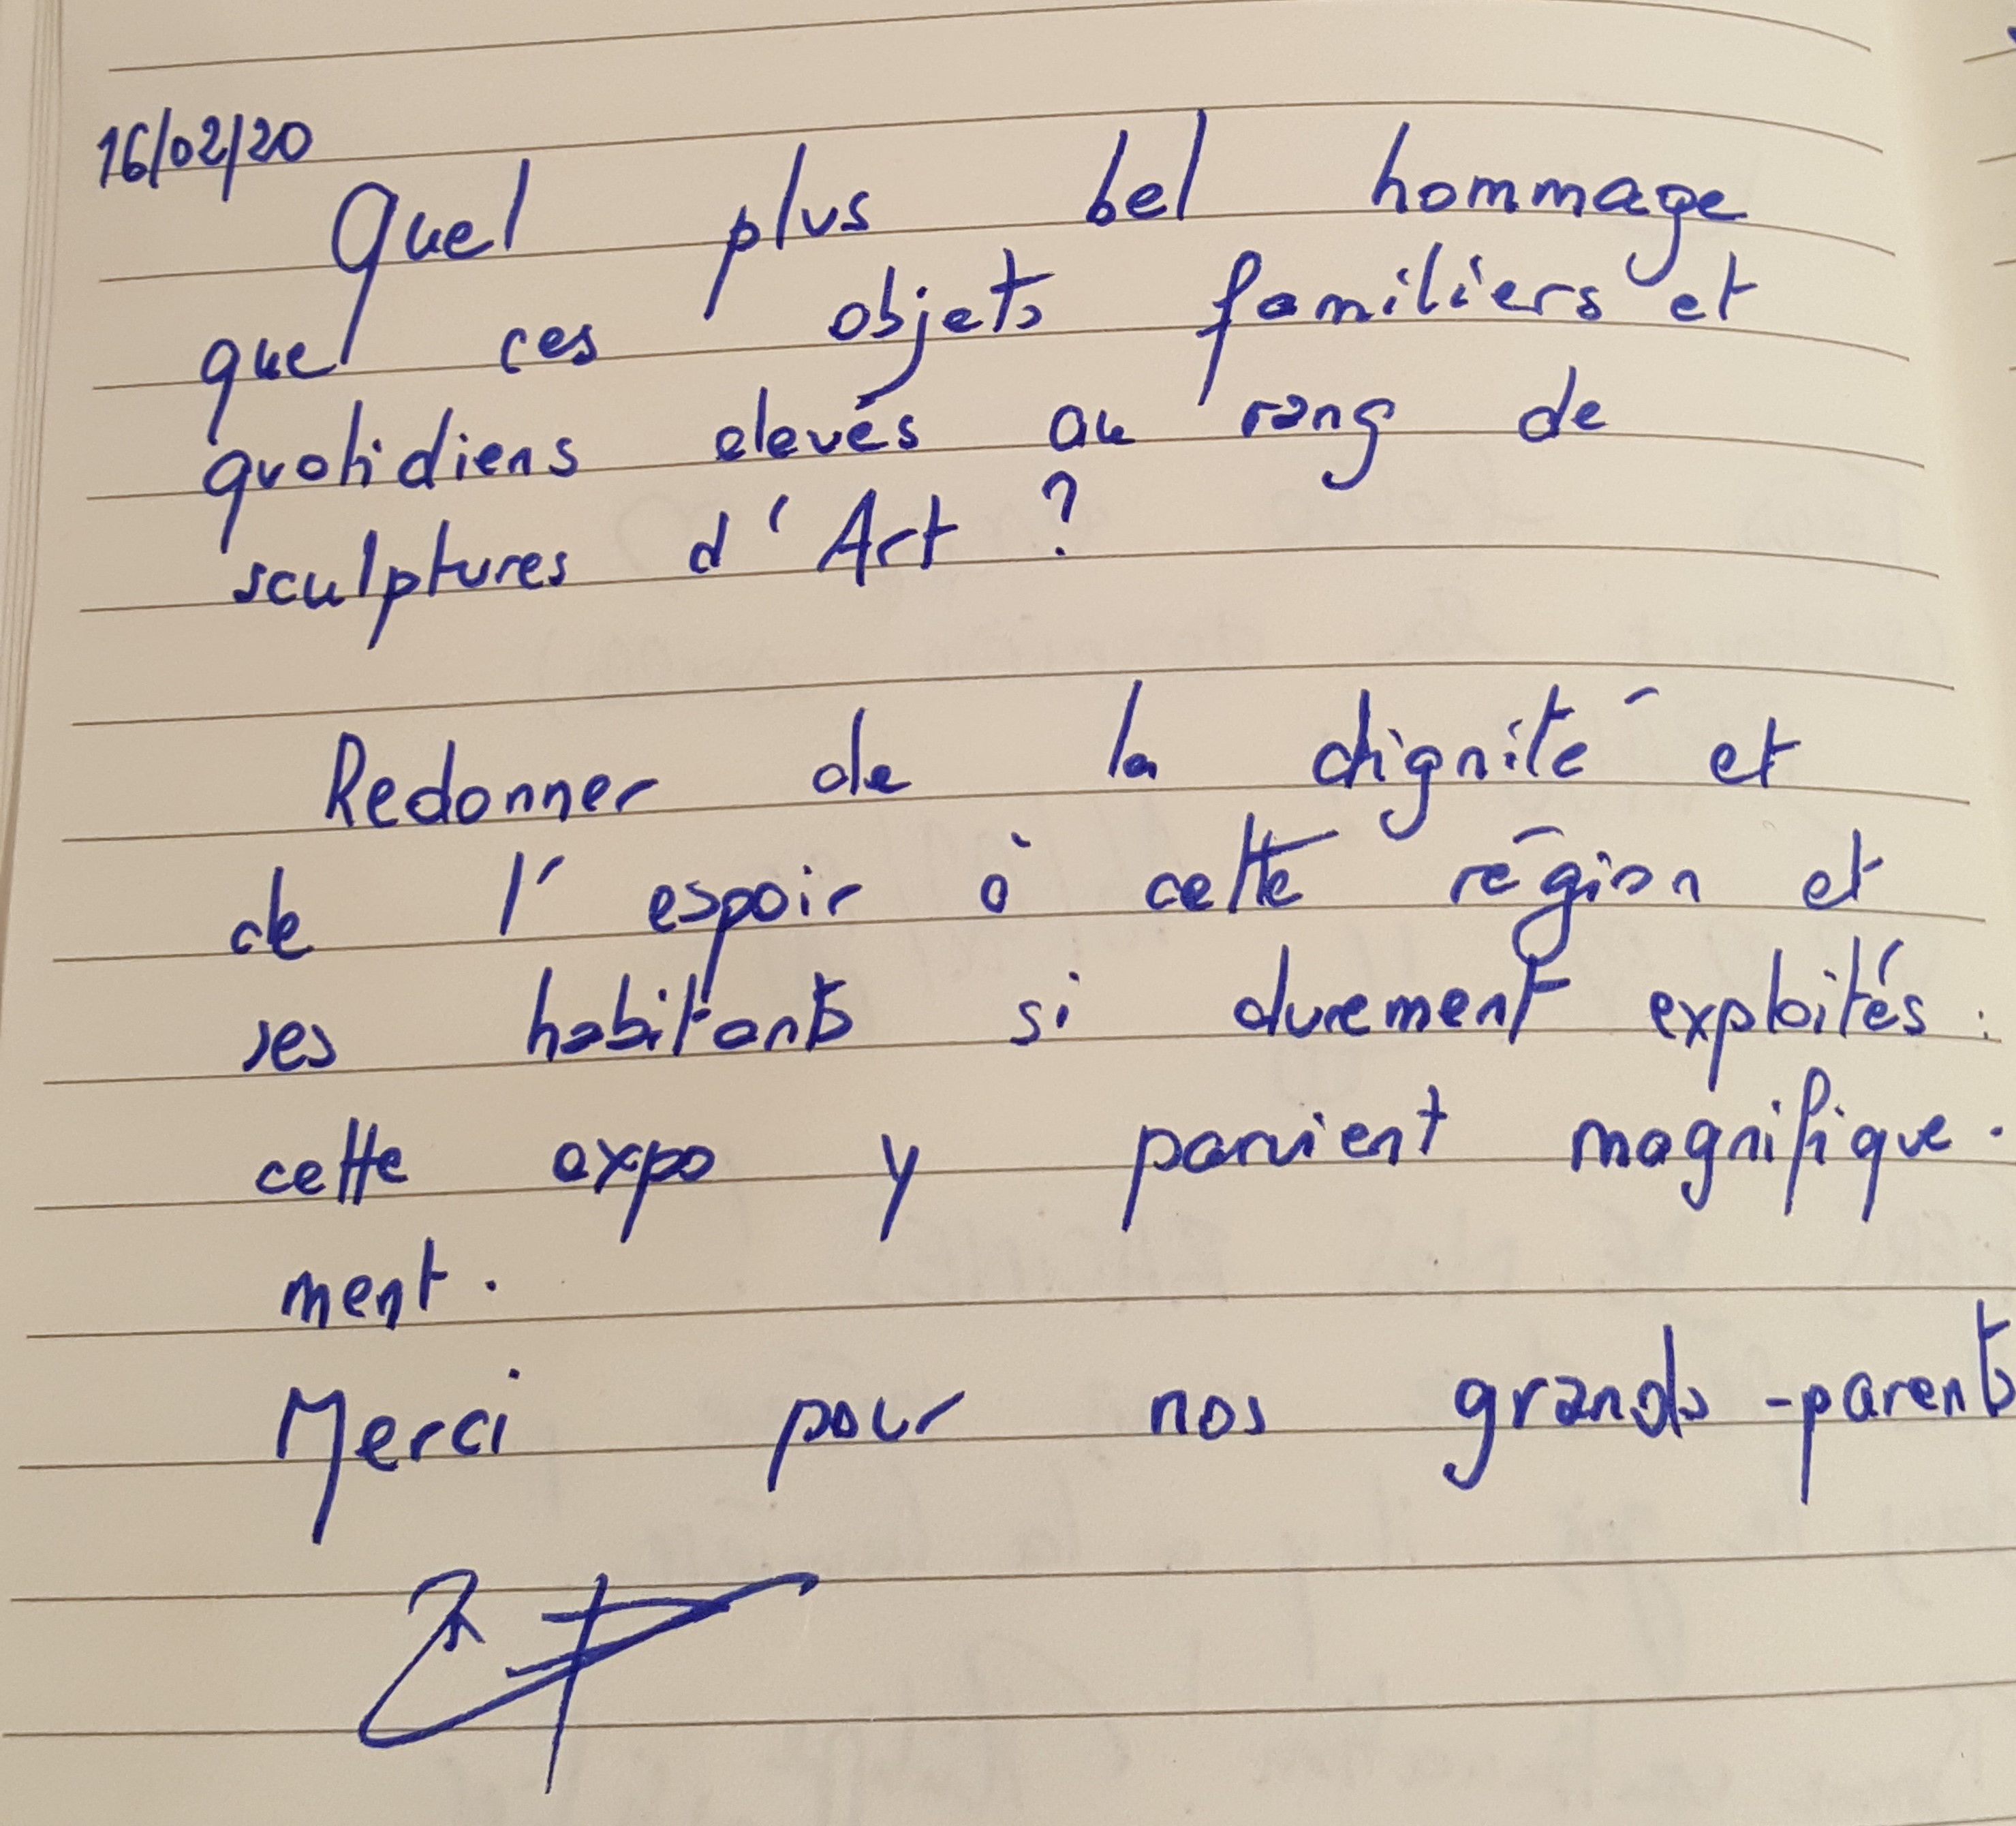 16/02/20
Quel plus bel hommage
que ces objets familiers et
quotidiens elevés au rang de
sculptures d'Art ?
Redonner de la dignité et
de l'espoir à cette région et
ses habitants si durement exploités :
cette expo y parvient magnifique-
ment.
Merci pour nos grands-parents